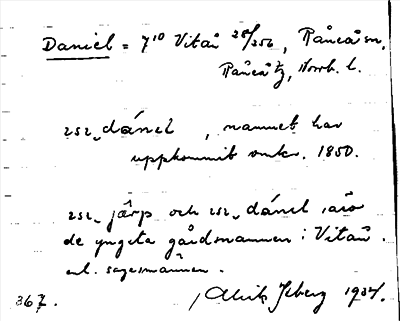 Daniel = 7¹⁰ Vitån 25/256, Råneå sn,
Råneå tg, Norrb. l.
dánel, namnet har
uppkommit omkr. 1850.
järp och dánel, äro
de yngsta gårdsnamnen i Vitån.
enl. sagesmannen.
367. Isberg 1934.